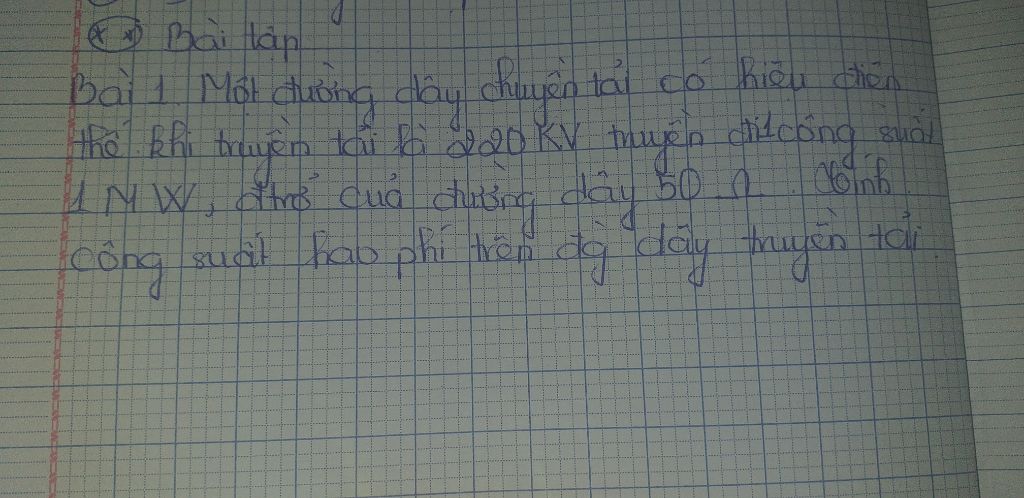 ** Bài tập
Bài 1 Một đường dây chuyền tải có hiệu điện
thế khi truyền tải là 220KV truyền đi 1 công suất
1 MW, đtrở của đường dây 50 Ω. tính
công suất hao phí trên đg dây truyền tải